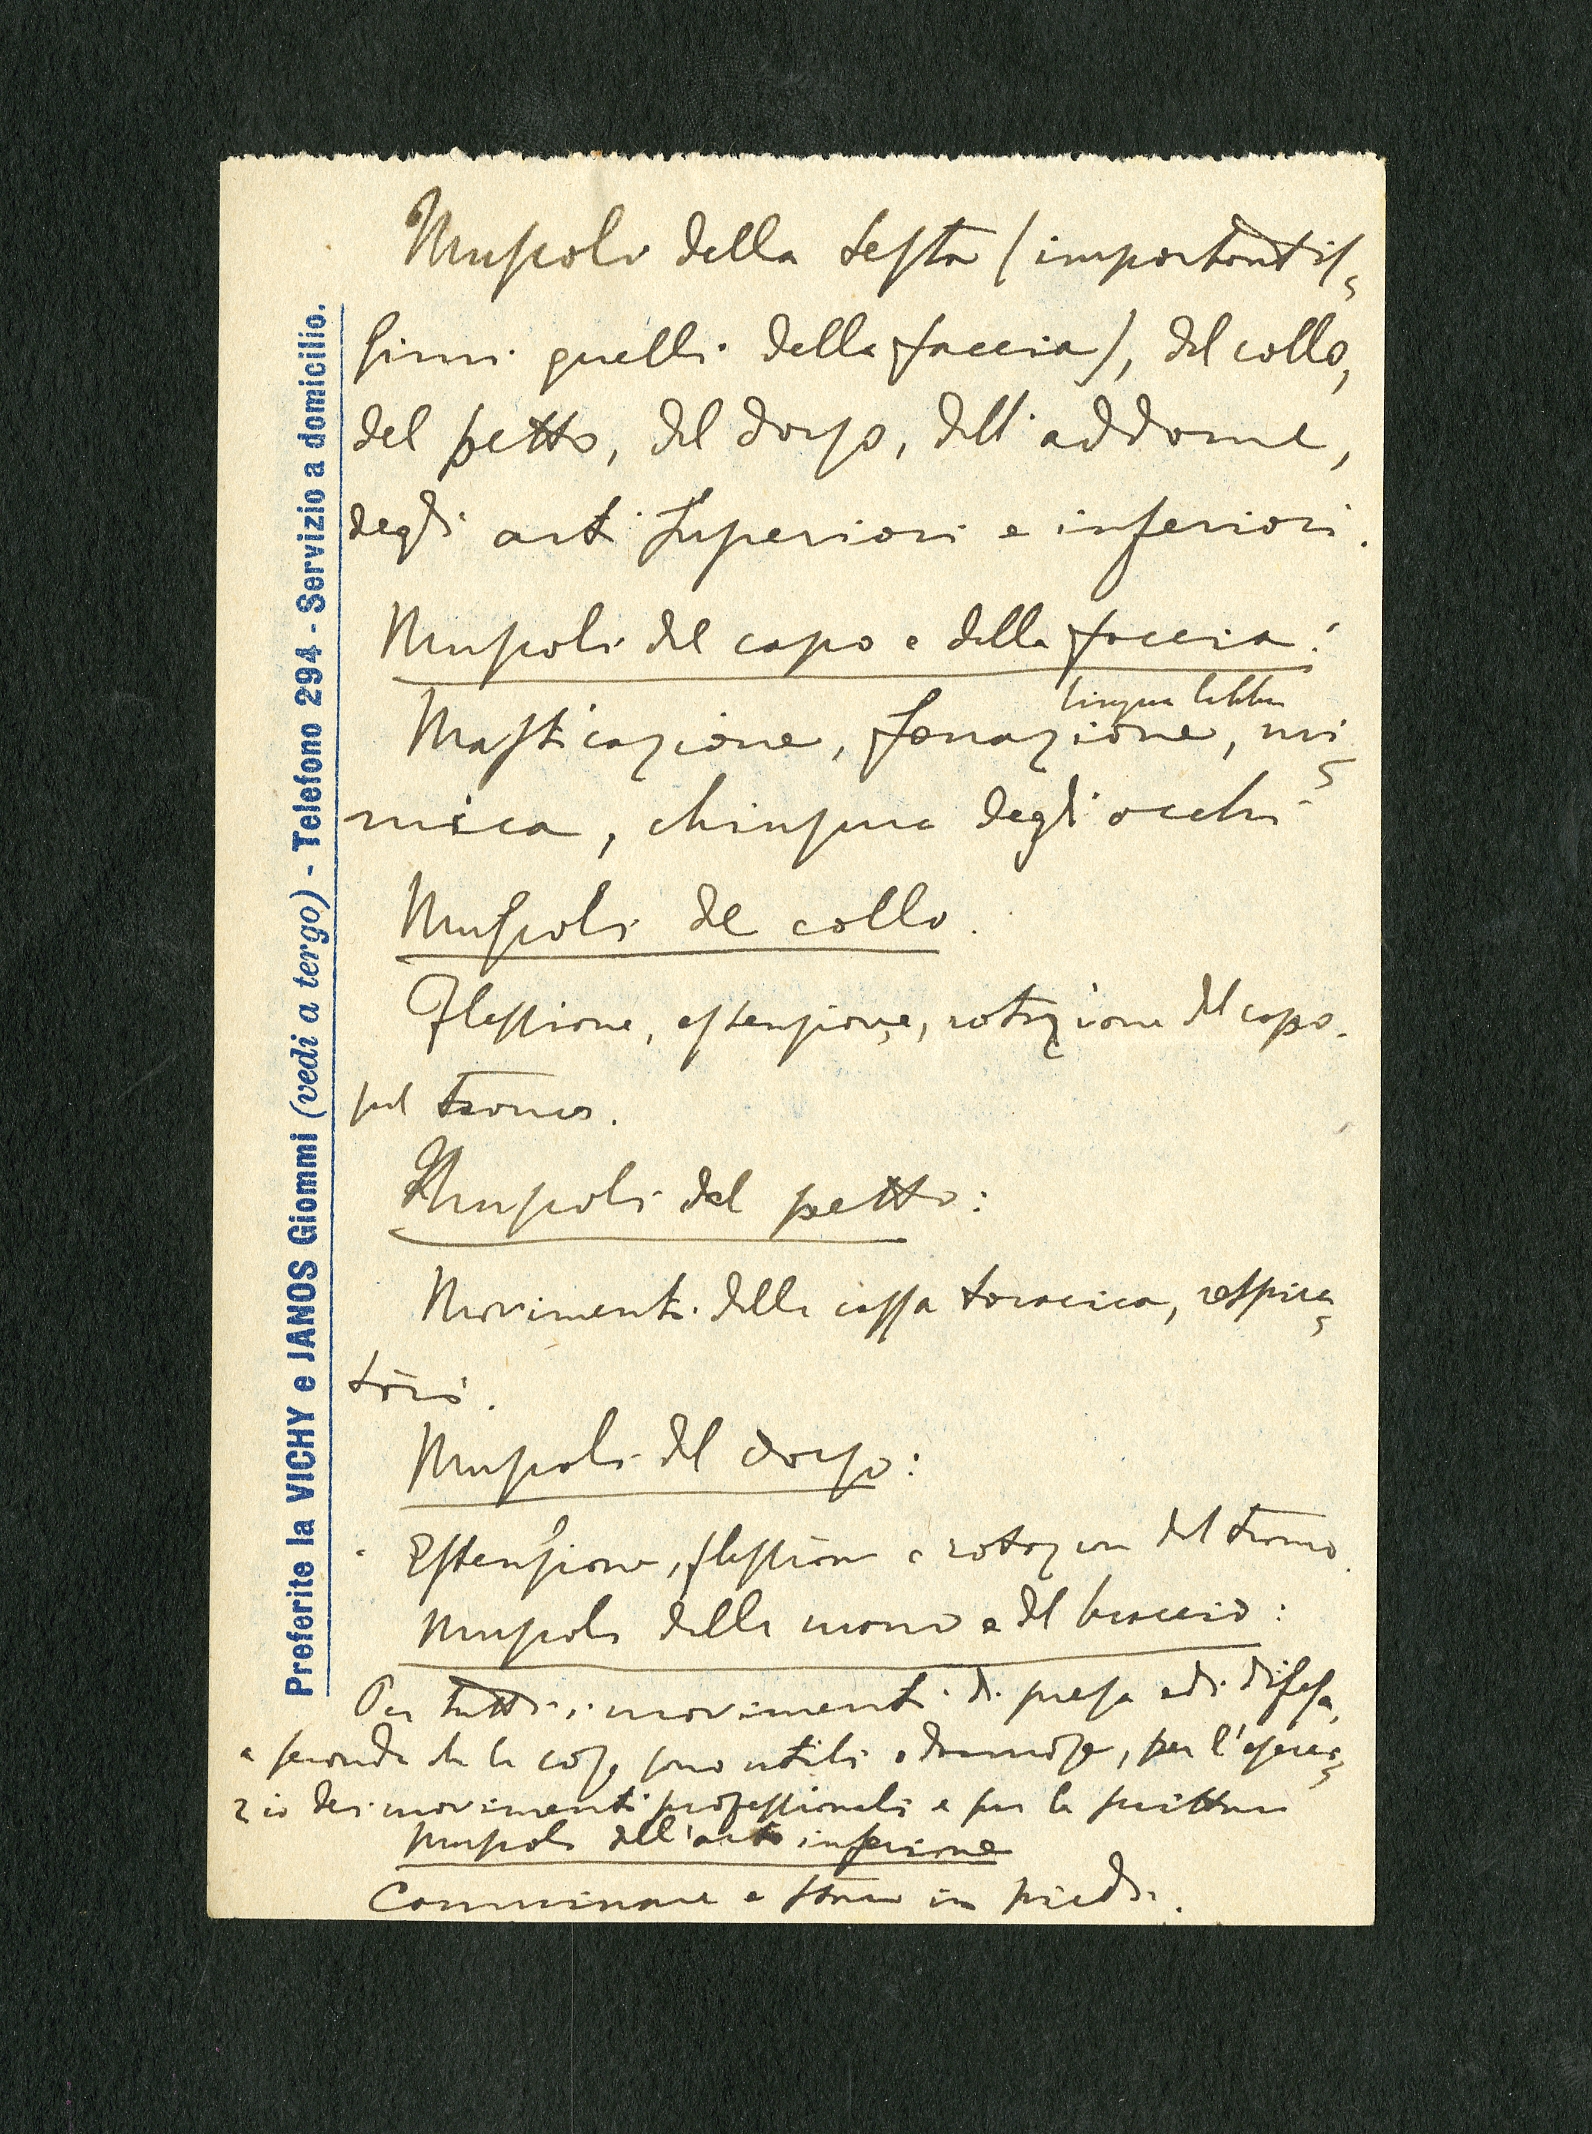 Muscoli della testa (importantis=
simi quelli della faccia), del collo,
del petto, del dorso, dell'addome,
degli arti superiori e inferiori.
Muscoli del capo e della faccia:
lingua labbra
Masticazione, fonazione, mi=
mica, chiusura degli occhi
Muscoli del collo.
Flessione, estensione, rotazione del capo
sul tronco.
Muscoli del petto:
Movimenti della cassa toracica, respira=
tori.
Muscoli del dorso:
Estensione, flessione e rotazione del tronco.
Muscoli della mano e del braccio:
Per tutti i movimenti di presa e di difesa,
a seconda che le cose sono utili o dannose, per l'eserci=
zio dei movimenti professionali e per la scrittura
Muscoli dell'arto inferiore
Camminare e stare in piedi.
Preferite la VICHY e JANOS Giommi (vedi a tergo) - Telefono 294 - Servizio a domicilio.